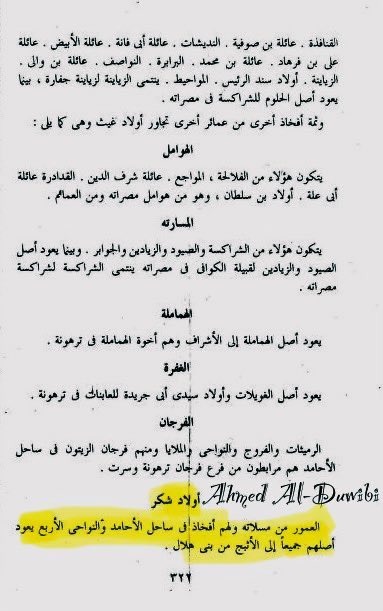 القنافذة . عائلة بن صوفية . النديشات . عائلة أبى فانة . عائلة الأبيض . عائلة
على بن فرهاد . عائلة بن محمد . البرابرة . النواصف . عائلة بن والى .
الزياينة . أولاد سند الرئيس . المواحيط . ينتمى الزياينة لزياينة جفارة ، بينما
يعود أصل الحلوم للشراكسة فى مصراته .
وثمة أفخاذ أخرى من عمائر أخرى تجاور أولاد غيث وهى كما يلى :
الهوامل
يتكون هؤلاء من الفلالحة ، المواجع . عائلة شرف الدين . القدادرة عائلة
أبى علة . أولاد بن سلطان ، وهو من هوامل مصراته ومن العمائم .
المسارته
يتكون هؤلاء من الشراكسة والصيود والزيادين والجوابر . وبينما يعود أصل
الصيود والزيادين لقبيلة الكوافى فى مصراته ينتمى الشراكسة لشراكسة
مصراته .
الهماملة
يعود أصل الهماملة إلى الأشراف وهم أخوة الهماملة فى ترهونة .
الغفرة
يعود أصل الغويلات وأولاد سيدى أبى جريدة للعابنات فى ترهونة .
الفرجان
الرميثات والفروج والنواحى والملايا ومنهم فرجان الزيتون فى ساحل
الأحامد هم مرابطون من فرع فرجان ترهونة وسرت .
أولاد شكر Ahmed Al-Duwibi
العمور من مسلاته ولهم أفخاذ فى ساحل الأحامد والنواحى الأربع يعود
أصلهم جميعاً إلى الأثبج من بنى هلال .
٣٢٢